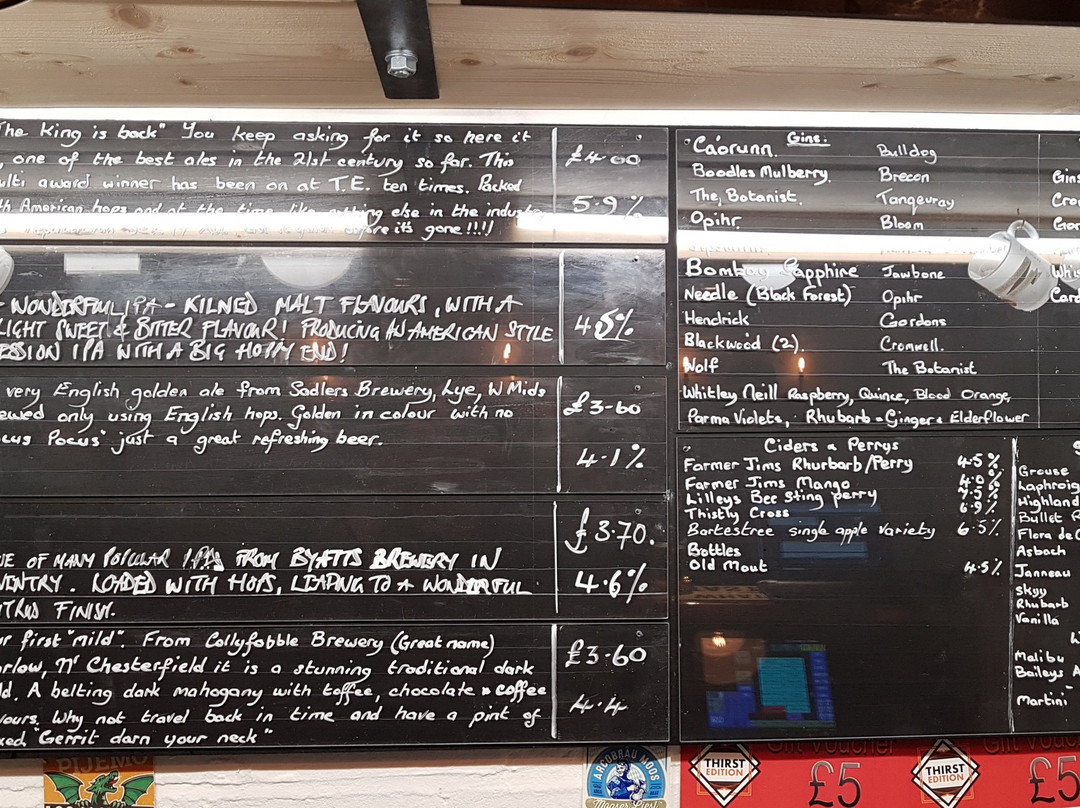 The King is back" You keep asking for it so here it
, one of the best ales in the 21st century so far. This
ulti award winner has been on at T.E. ten times. Packed
th American hops and at the time like nothing else in the industry
before it's gone!!!!
£4-00
5.9%
- WONDERFUL IPA - KILNED MALT FLAVOURS, WITH A
LIGHT SWEET & BITTER FLAVOUR! PRODUCING AN AMERICAN STYLE
ESSION IPA WITH A BIG HOPPY END!
4.5%
very English golden ale from Sadlers Brewery, Lye, W Mids
ewed only using English hops. Golden in colour with no
ocus Pocus" just a great refreshing beer.
£3-60
4.1%
£3.70.
UE OF MANY POPULAR I.P.As FROM BYATTS BREWERY IN
VENTRY. LOADED WITH HOPS, LEADING TO A WONDERFUL
ITRUS FINISH.
4.6%
ur first "mild". From Collyfobble Brewery (Great name)
arlow, Nr Chesterfield it is a stunning traditional dark
ld. A belting dark mahogany with toffee, chocolate & coffee
vours. Why not travel back in time and have a pint of
xed "Gerrit darn your neck"
£3-60
4.4
Gins.
Caorunn. Bulldog
Boodles Mulberry. Brecon
The, Botanist. Tanqueray
Opihr Bloom
Bombay Sapphire Jawbone
Needle (Black Forest) Opihr
Hendrick Gordons
Blackwood (2). Cromwell.
Wolf The Botanist
Whitley Neill Raspberry, Quince, Blood Orange,
Parma Violets, Rhubarb & Ginger & Elderflower
Gins
Cro
Gor
Whis
Card
Ciders & Perrys
Farmer Jims Rhurbarb/Perry 4.5%
Farmer Jims Mango 4.0%
Lilleys Bee Sting perry 7.5%
Thistly Cross 6.9%
Bartestree single apple variety 6.5%
Bottles
Old Mout 4.5%
S
Grouse
Laphroig
Highland
Bullet R
Flora de C
Asbach
Janneau
Skyy
Rhubarb
Vanilla
Li
Malibu
Baileys A
Martini
PIJEMO
ARCOBRÄU MOOS
Mooser Liesl
Gift Voucher
THIRST
EDITION
£5
Gift Vouc
THIRST
EDITION
£5